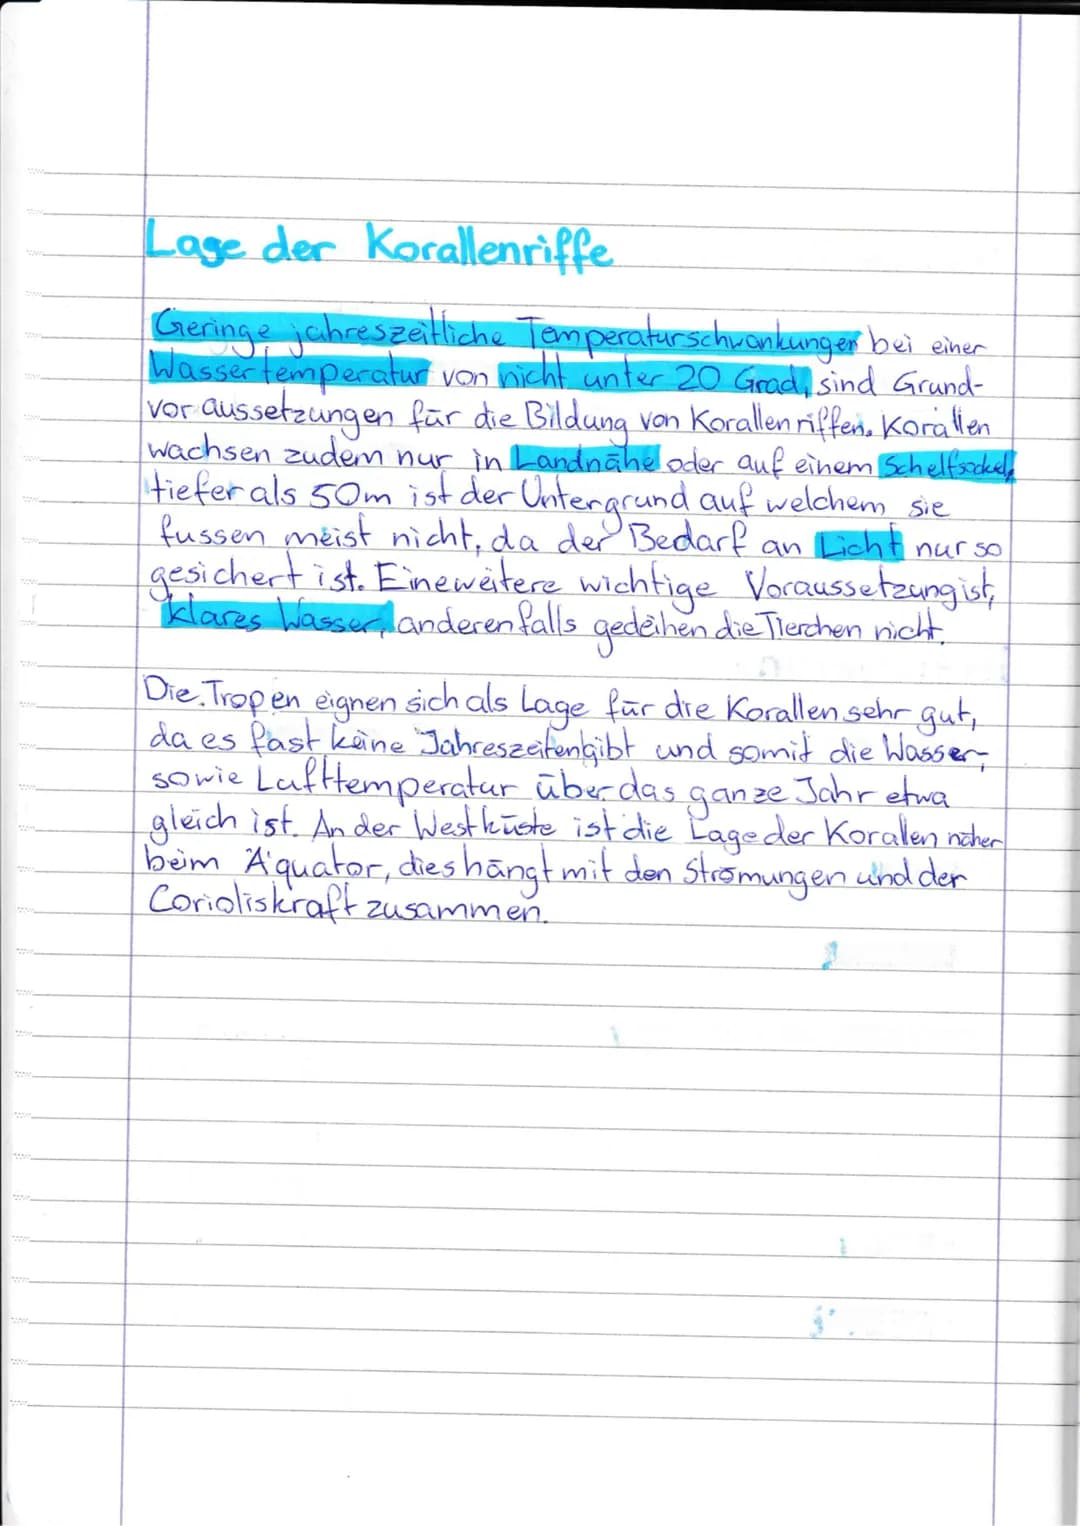 Lage der Korallenriffe
Geringe jahreszeitliche Temperaturschwankungen bei einer
Wassertemperatur von nicht unter 20 Grad, sind Grund-
voraussetzungen für die Bildung von Korallenriffen. Korallen
wachsen zudem nur in Landnähe oder auf einem Schelfsockel,
tiefer als 50m ist der Untergrund auf welchem sie
fussen meist nicht, da der Bedarf an Licht nur so
gesichert ist. Eine weitere wichtige Voraussetzung ist,
klares Wasser, anderenfalls gedeihen die Tierchen nicht.
Die Tropen eignen sich als Lage für die Korallen sehr gut,
da es fast keine Jahreszeiten gibt und somit die Wasser-,
sowie Lufttemperatur über das ganze Jahr etwa
gleich ist. An der Westküste ist die Lage der Korallen näher
beim Äquator, dies hängt mit den Strömungen und der
Corioliskraft zusammen.